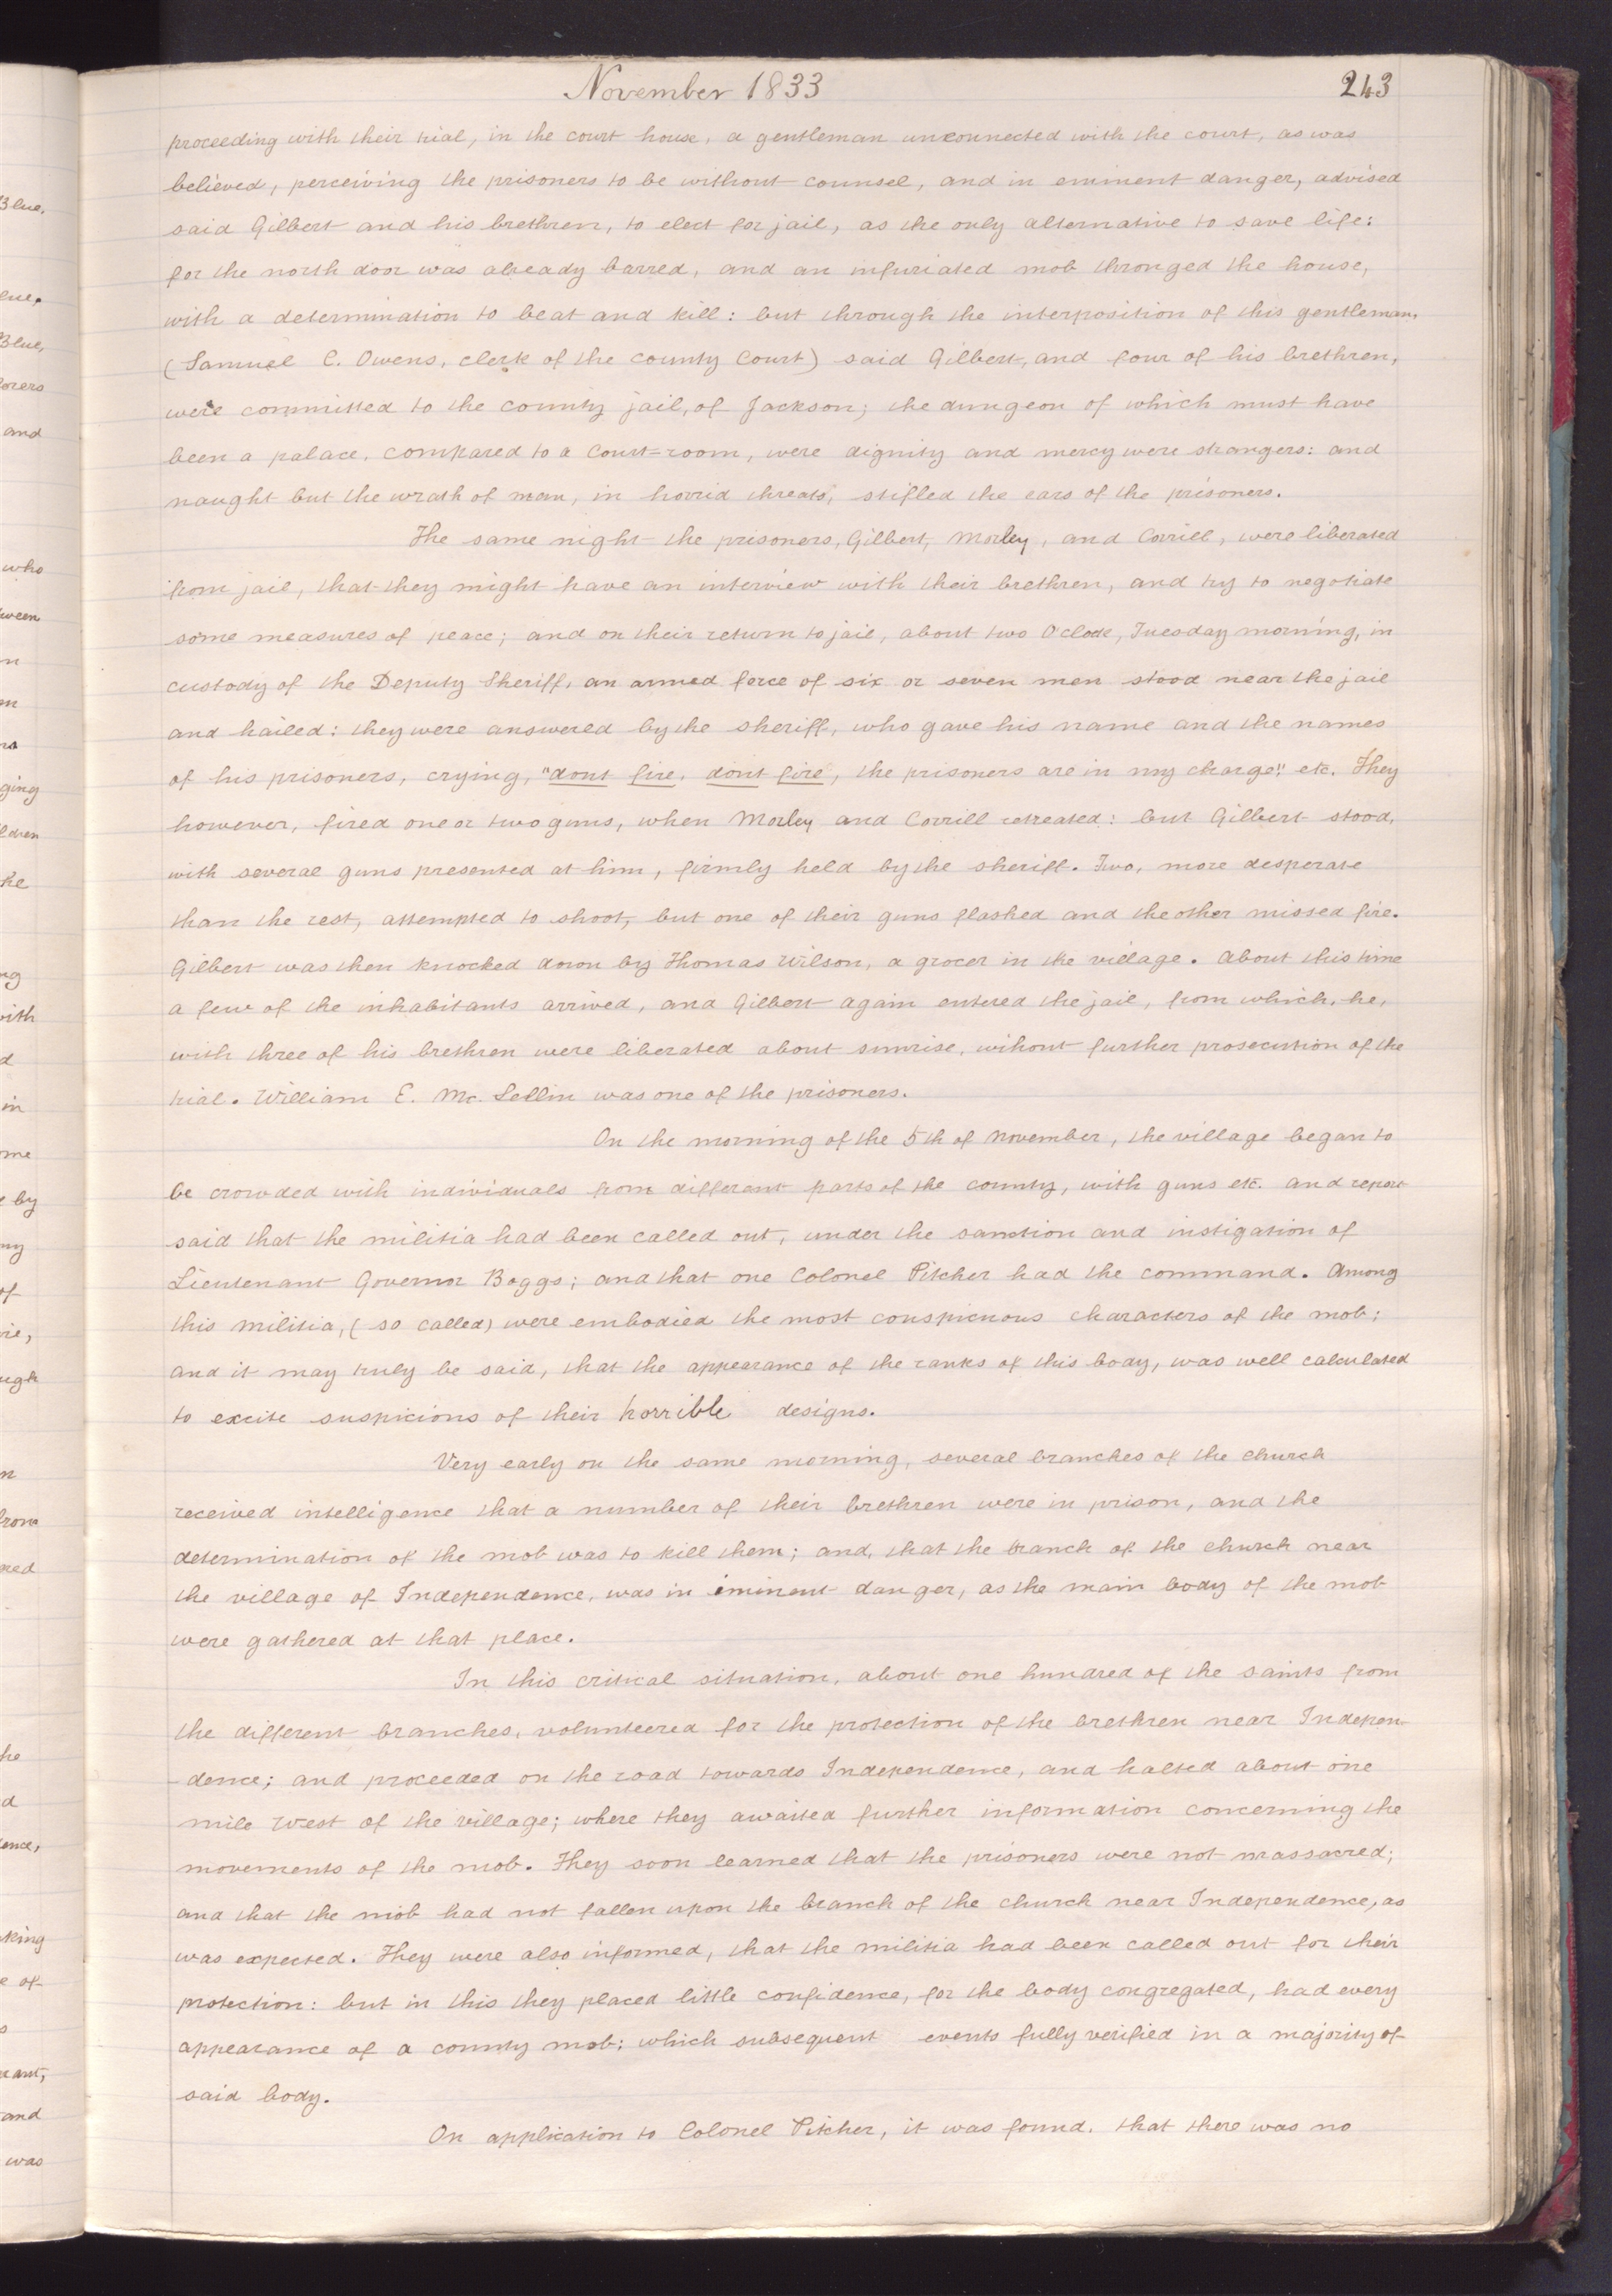 November 1833
243
proceeding with their trial, in the court house, a gentleman unconnected with the court, as was
believed, perceiving the prisoners to be without counsel, and in eminent danger, advised
said Gilbert and his brethren, to elect for jail, as the only alternative to save life:
for the north door was already barred, and an infuriated mob thronged the house,
with a determination to beat and kill: but through the interposition of this gentleman,
(Samuel C. Owens, clerk of the county Court) said Gilbert, and four of his brethren,
were committed to the county jail, of Jackson; the dungeon of which must have
been a palace, compared to a Court=room, were dignity and mercy were strangers: and
naught but the wrath of man, in horrid threats, stifled the ears of the prisoners.
The same night the prisoners, Gilbert, Morley, and Corrill, were liberated
from jail, that they might have an interview with their brethren, and try to negotiate
some measures of peace; and on their return to jail, about two Oclock, Tuesday morning, in
custody of the Deputy Sheriff, an armed force of six or seven men stood near the jail
and hailed: they were answered by the sheriff, who gave his name and the names
of his prisoners, crying, "dont fire, dont fire, the prisoners are in my charge" etc. They
however, fired one or two guns, when Morley and Corrill retreated: but Gilbert stood,
with several guns presented at him, firmly held by the sheriff. Two, more desperate
than the rest, attempted to shoot, but one of their guns flashed and the other missed fire.
Gilbert was then knocked down by Thomas Wilson, a grocer in the village. About this time
a few of the inhabitants arrived, and Gilbert again entered the jail, from which, he,
with three of his brethren were liberated about sunrise, wihout further prosecution of the
trial. William E. Mc. Lellin was one of the prisoners.
On the morning of the 5th of November, the village began to
be crowded with individuals from different parts of the county, with guns etc. and report
said that the militia had been called out, under the sanction and instigation of
Lieutenant Governor Boggs; and that one Colonel Pitcher had the command. Among
this militia, (so called) were embodied the most conspicuous characters of the mob;
and it may truly be said, that the appearance of the ranks of this body, was well calculated
to excite suspicions of their horrible designs.
Very early on the same morning, several branches of the church
received intelligence that a number of their brethren were in prison, and the
determination of the mob was to kill them; and, that the branch of the church near
the village of Independence, was in iminent danger, as the main body of the mob
were gathered at that place.
In this critical situation, about one hundred of the saints from
the different branches, volunteered for the protection of the brethren near Indepen-
-dence; and proceeded on the road towards Independence, and halted about one
mile west of the village; where they awaited further information concerning the
movements of the mob. They soon learned that the prisoners were not massacred;
and that the mob had not fallen upon the branch of the church near Independence, as
was expected. They were also informed, that the militia had been called out for their
protection: but in this they placed little confidence, for the body congregated, had every
appearance of a county mob; which subsequent events fully verified in a majority of
said body.
On application to Colonel Pitcher, it was found, that there was no